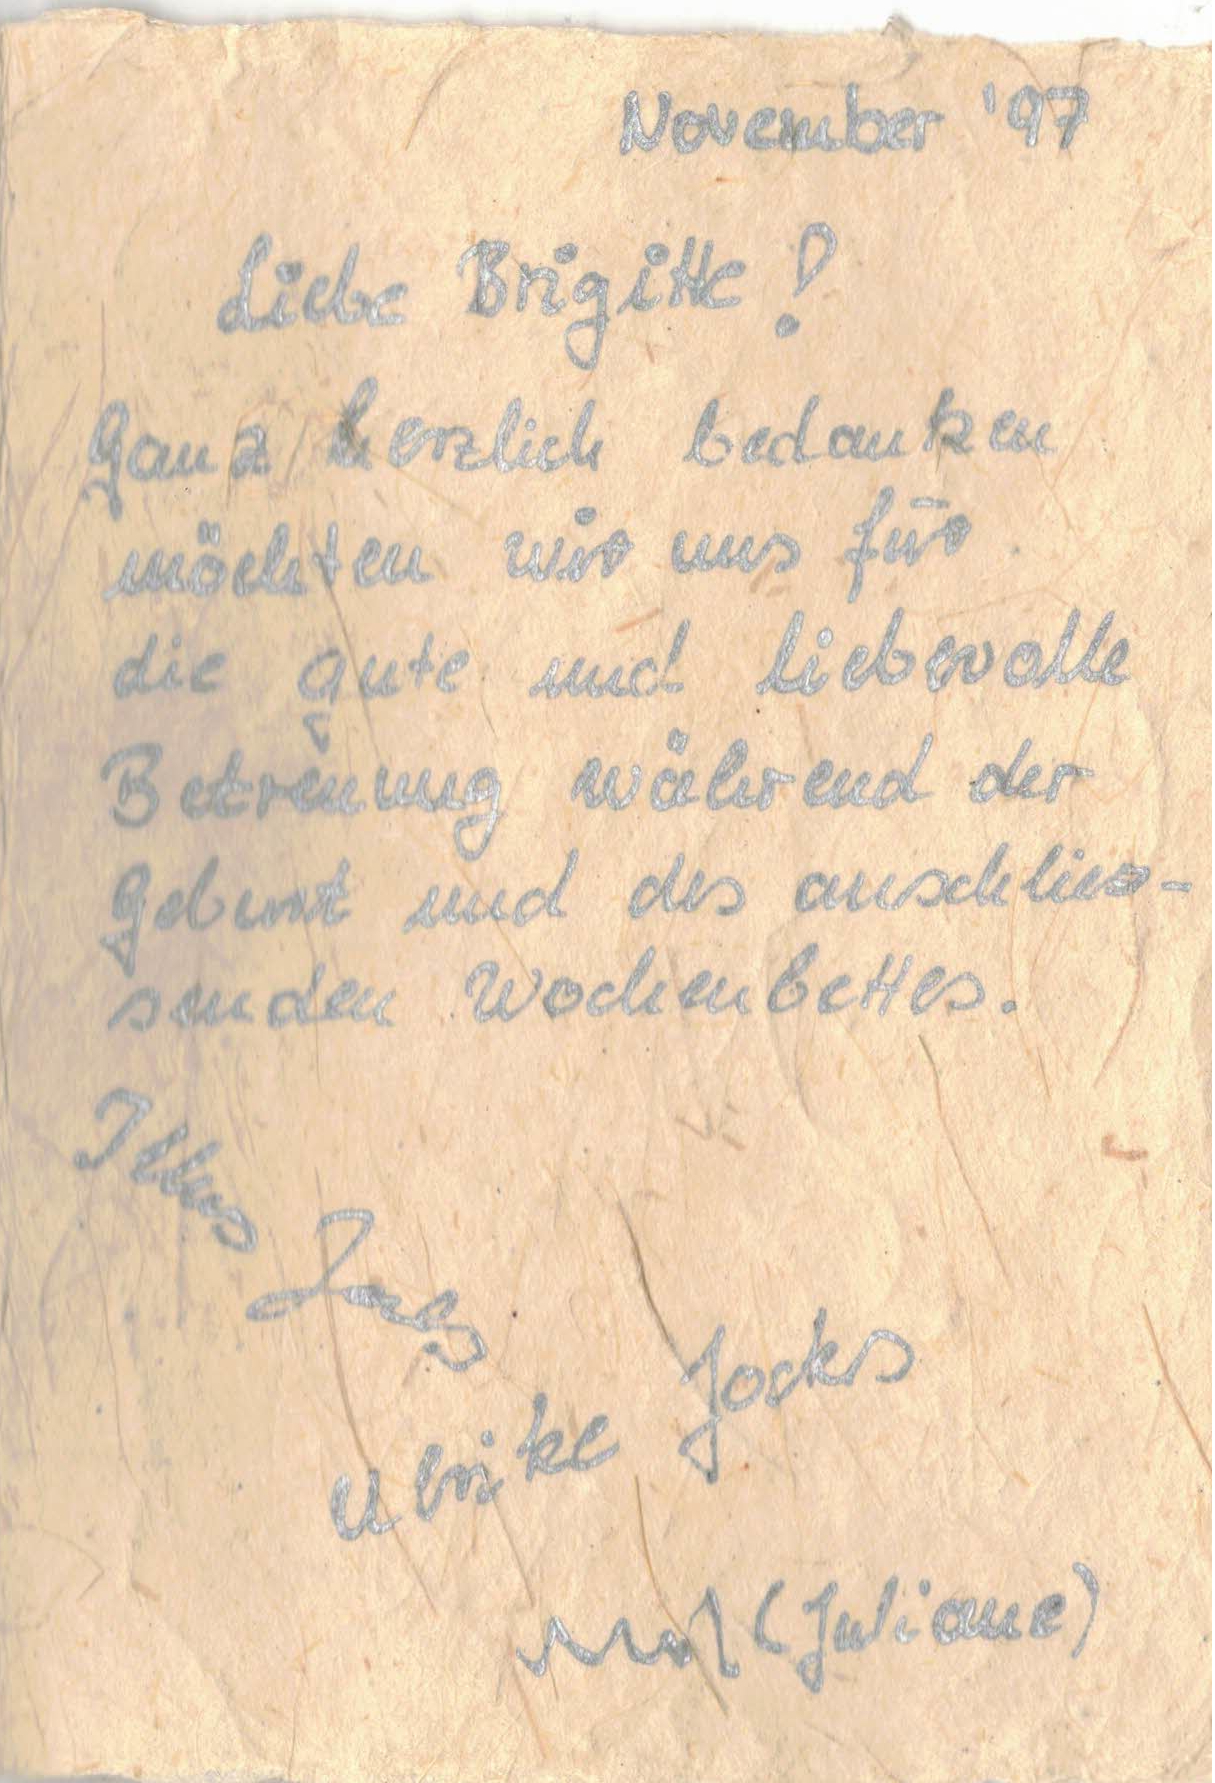 November '97
Liebe Brigitte!
Ganz herzlich bedanken
möchten wir uns für
die gute und liebevolle
Betreuung während der
Geburt und des anschlies-
senden Wochenbettes.
Ulrike Jocks
(Juliane)